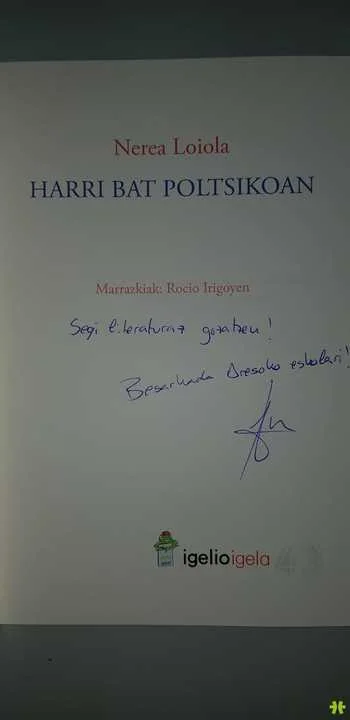 Nerea Loiola
HARRI BAT POLTSIKOAN
Marrazkiak: Rocio Irigoyen
Segi literaturaz gozatzen!
Besarkada Aresoko eskolari!
igelioigela